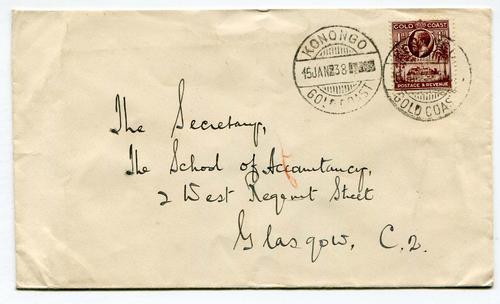 KONONGO
15 JAN 38
GOLD COAST
GOLD COAST
POSTAGE & REVENUE
GOLD COAST
The Secretary,
The School of Accountancy,
2 West Regent Street
Glasgow, C.2.